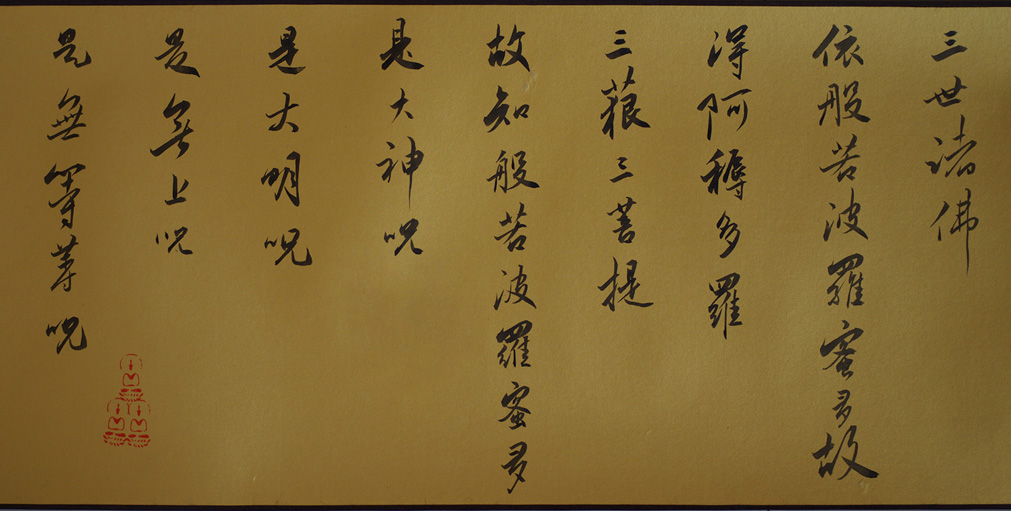 三世諸佛
依般若波羅蜜多故
得阿耨多羅
三藐三菩提
故知般若波羅蜜多
是大神咒
是大明咒
是無上咒
是無等等咒